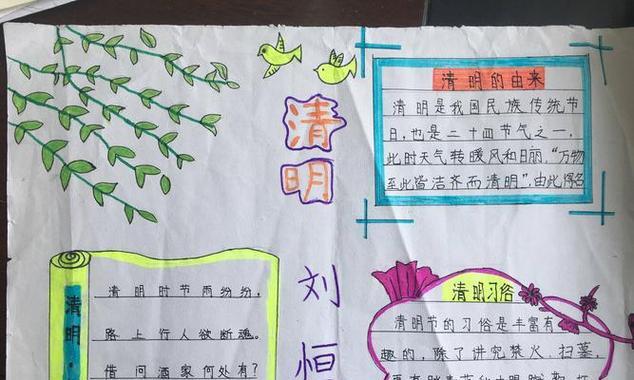 清明
刘
恒
清明的由来
清明是我国民族传统节
日,也是二十四节气之一,
此时天气转暖风和日丽,“万物
至此皆洁齐而清明”,由此得名
清明·
清明时节雨纷纷,
路上行人欲断魂。
借问酒家何处有?
清明习俗
清明节的习俗是丰富有
趣的,除了讲究禁火、扫墓,